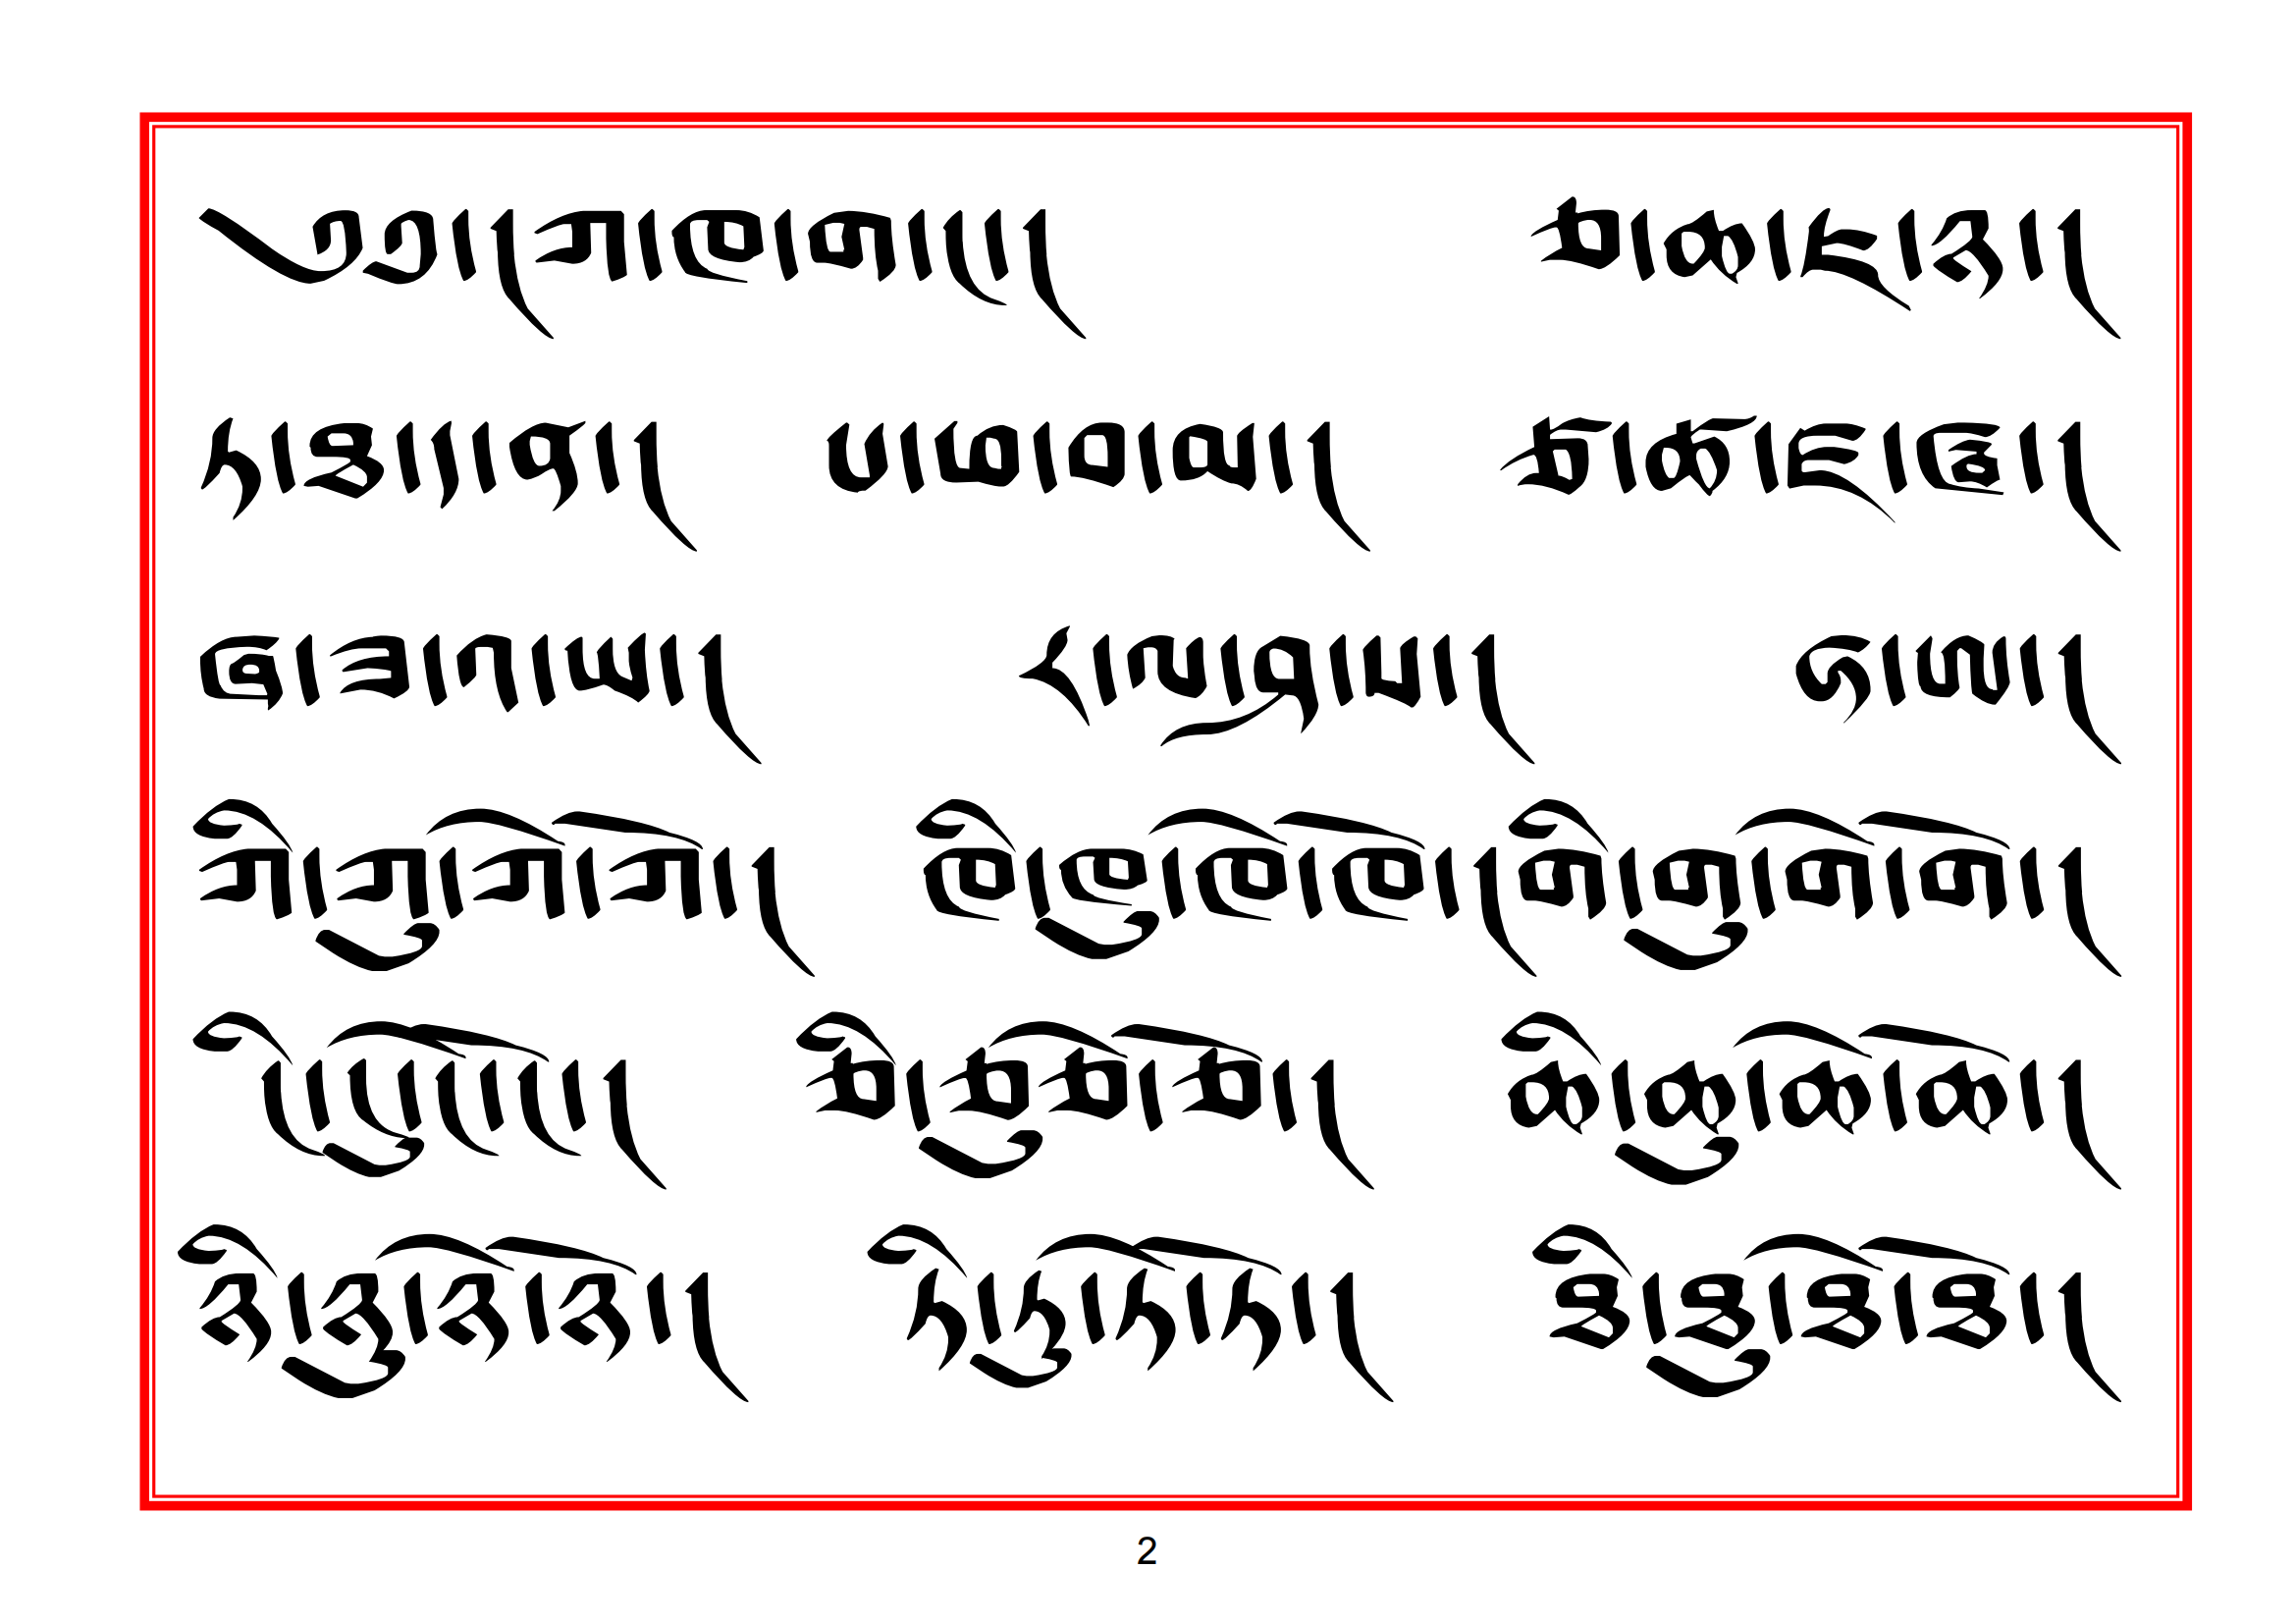 ༄༅་།ཀ་ཁ་ག་ང་། ཅ་ཆ་ཇ་ཉ་།
ཏ་ཐ་ད་ན་། པ་ཕ་བ་མ་། ཙ་ཚ་ཛ་ཝ་།
ཞ་ཟ་འ་ཡ་། ར་ལ་ཤ་ས་། ཧ་ཨ་།
ཀི་ཀུ་ཀེ་ཀོ་། ཁི་ཁུ་ཁེ་ཁོ་།གི་གུ་གེ་གོ་།
ངི་ངུ་ངེ་ངོ་། ཅི་ཅུ་ཅེ་ཅོ་། ཆི་ཆུ་ཆེ་ཆོ་།
ཉི་ཉུ་ཉེ་ཉོ་། ཏི་ཏུ་ཏེ་ཏོ་། ཐི་ཐུ་ཐེ་ཐོ་།
2